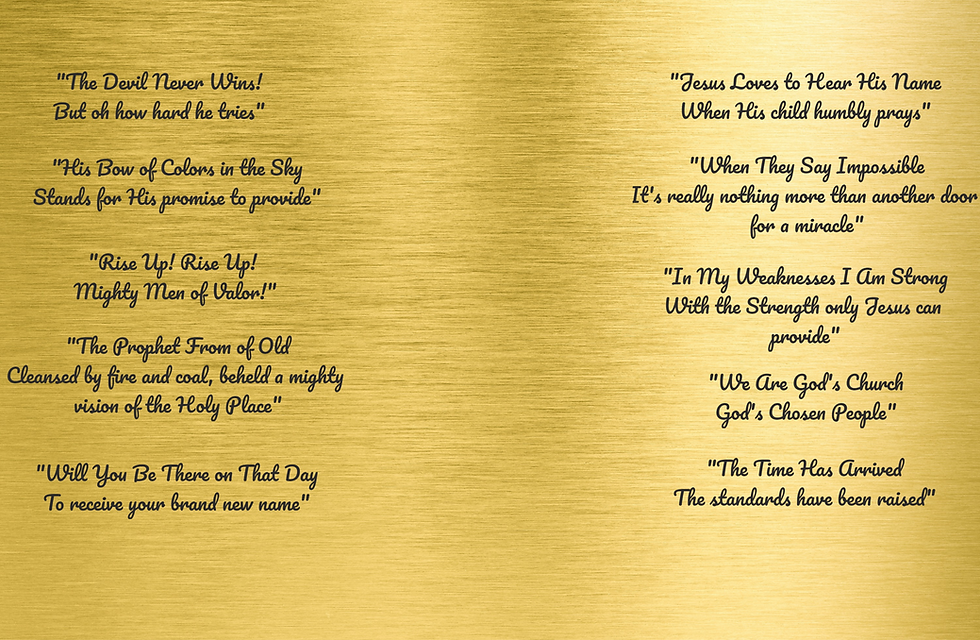 "The Devil Never Wins!
But oh how hard he tries"
"His Bow of Colors in the Sky
Stands for His promise to provide"
"Rise Up! Rise Up!
Mighty Men of Valor!"
"The Prophet From of Old
Cleansed by fire and coal, beheld a mighty
vision of the Holy Place"
"Will You Be There on That Day
To receive your brand new name"
"Jesus Loves to Hear His Name
When His child humbly prays"
"When They Say Impossible
It's really nothing more than another door
for a miracle"
"In My Weaknesses I Am Strong
With the Strength only Jesus can
provide"
"We Are God's Church
God's Chosen People"
"The Time Has Arrived
The standards have been raised"